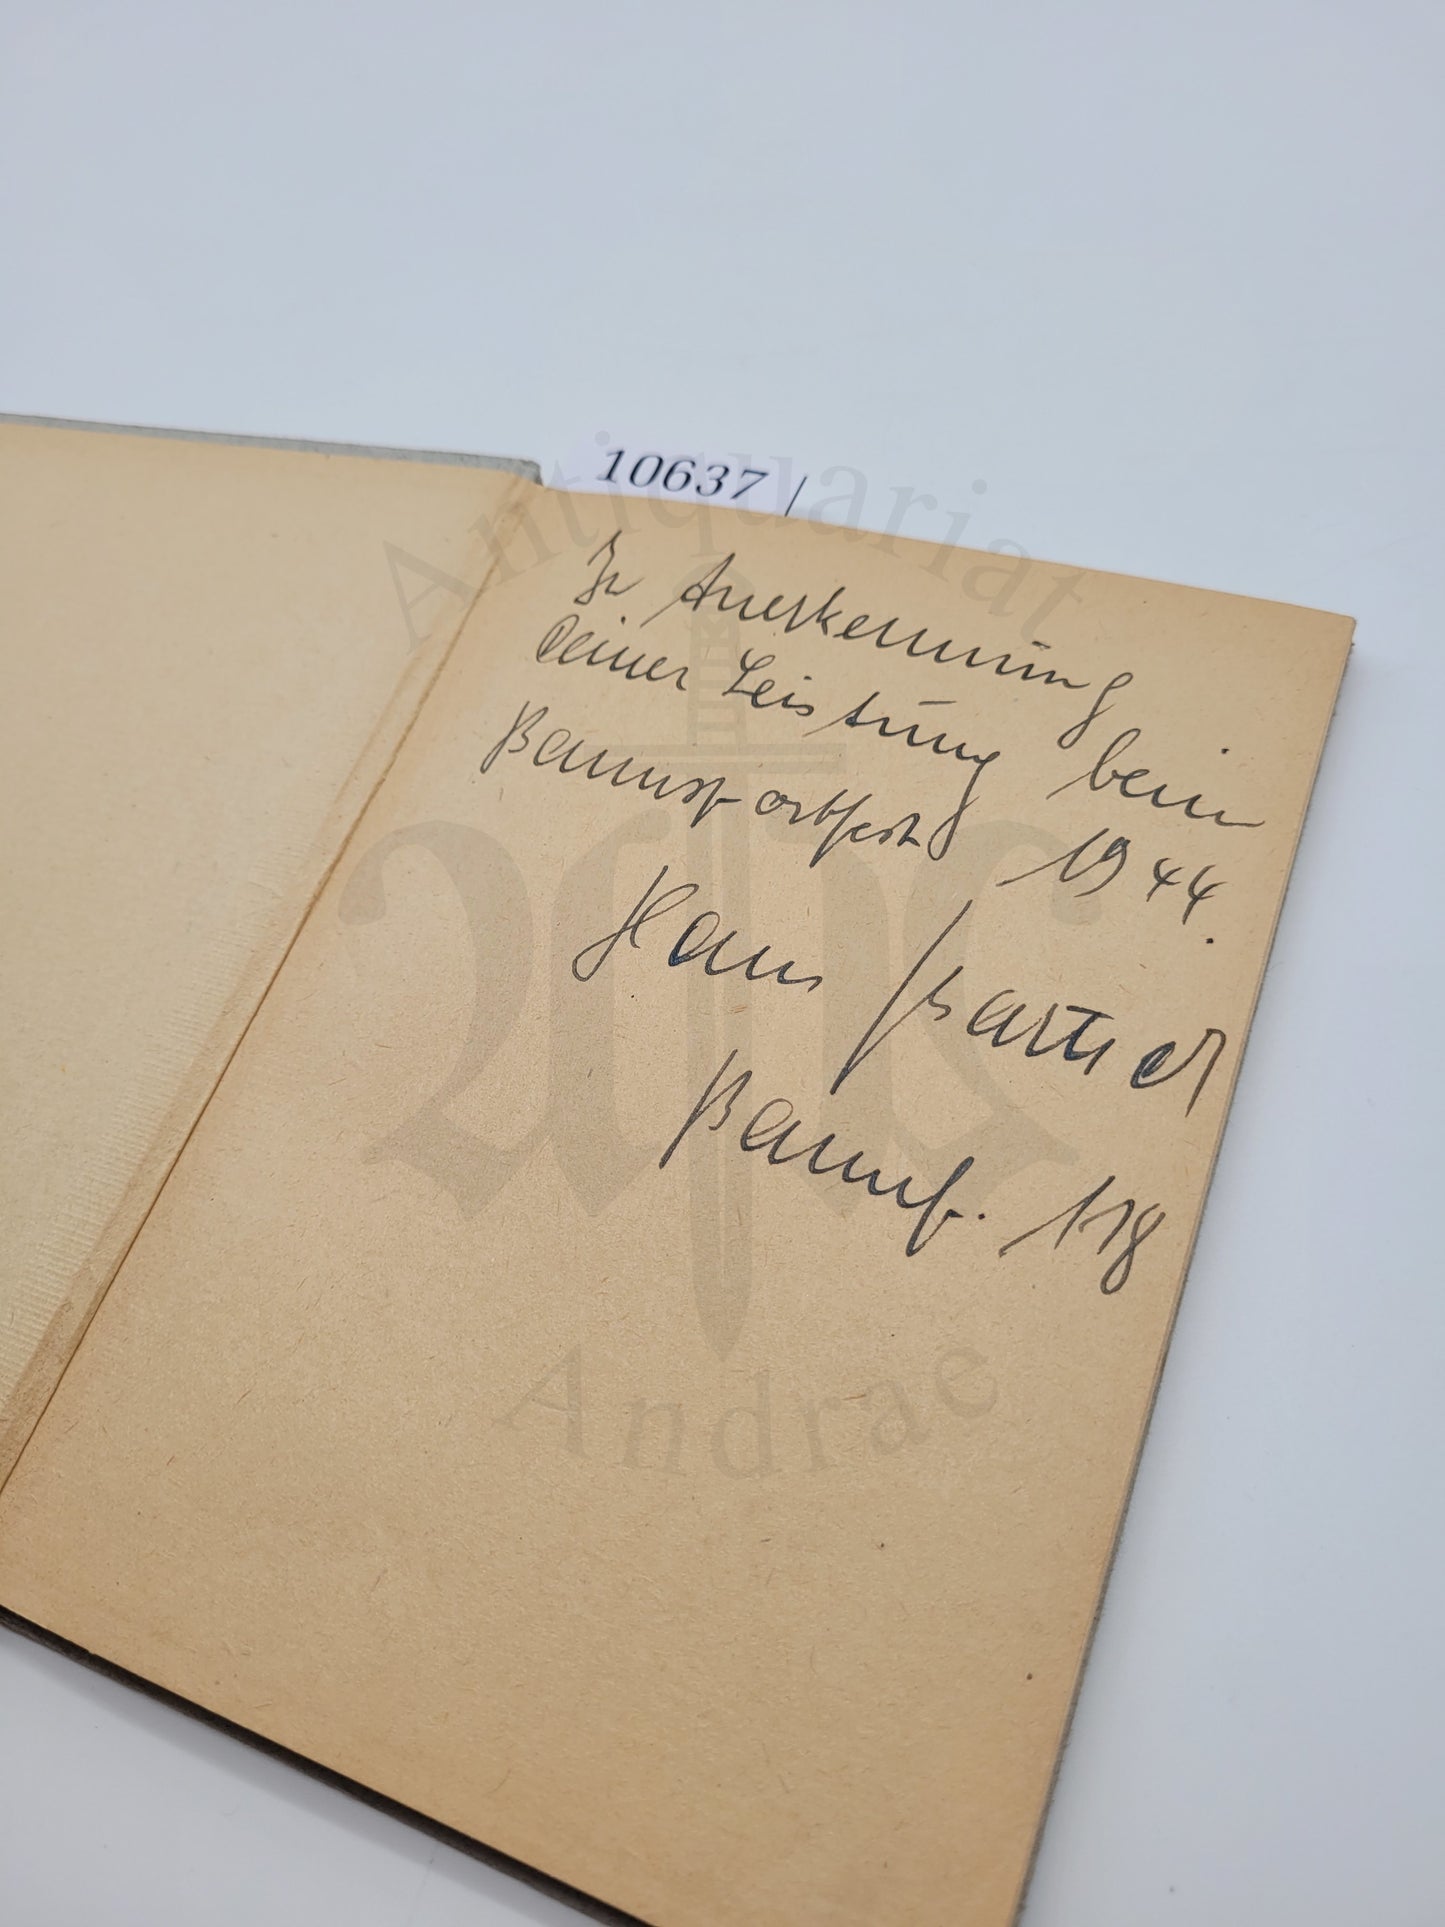 10637 /
In Anerkennung
Deiner Leistung beim
Bannsportfest 1944.
Hans
Bannf. 118
Antiquariat
Andrae